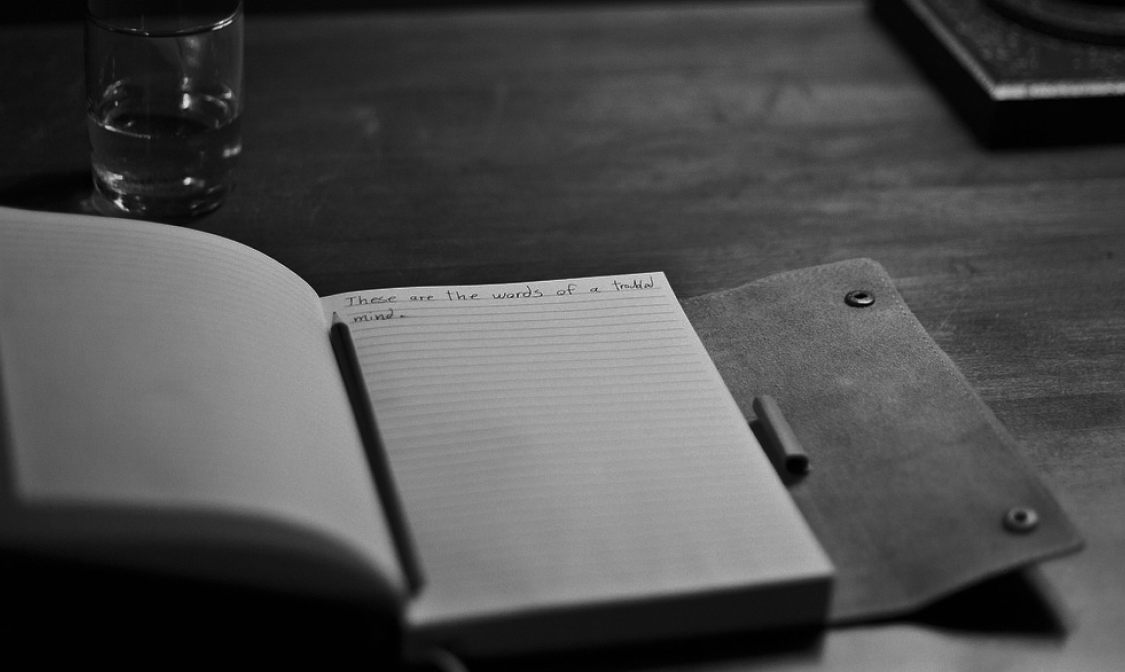 These are the words of a troubled
mind.